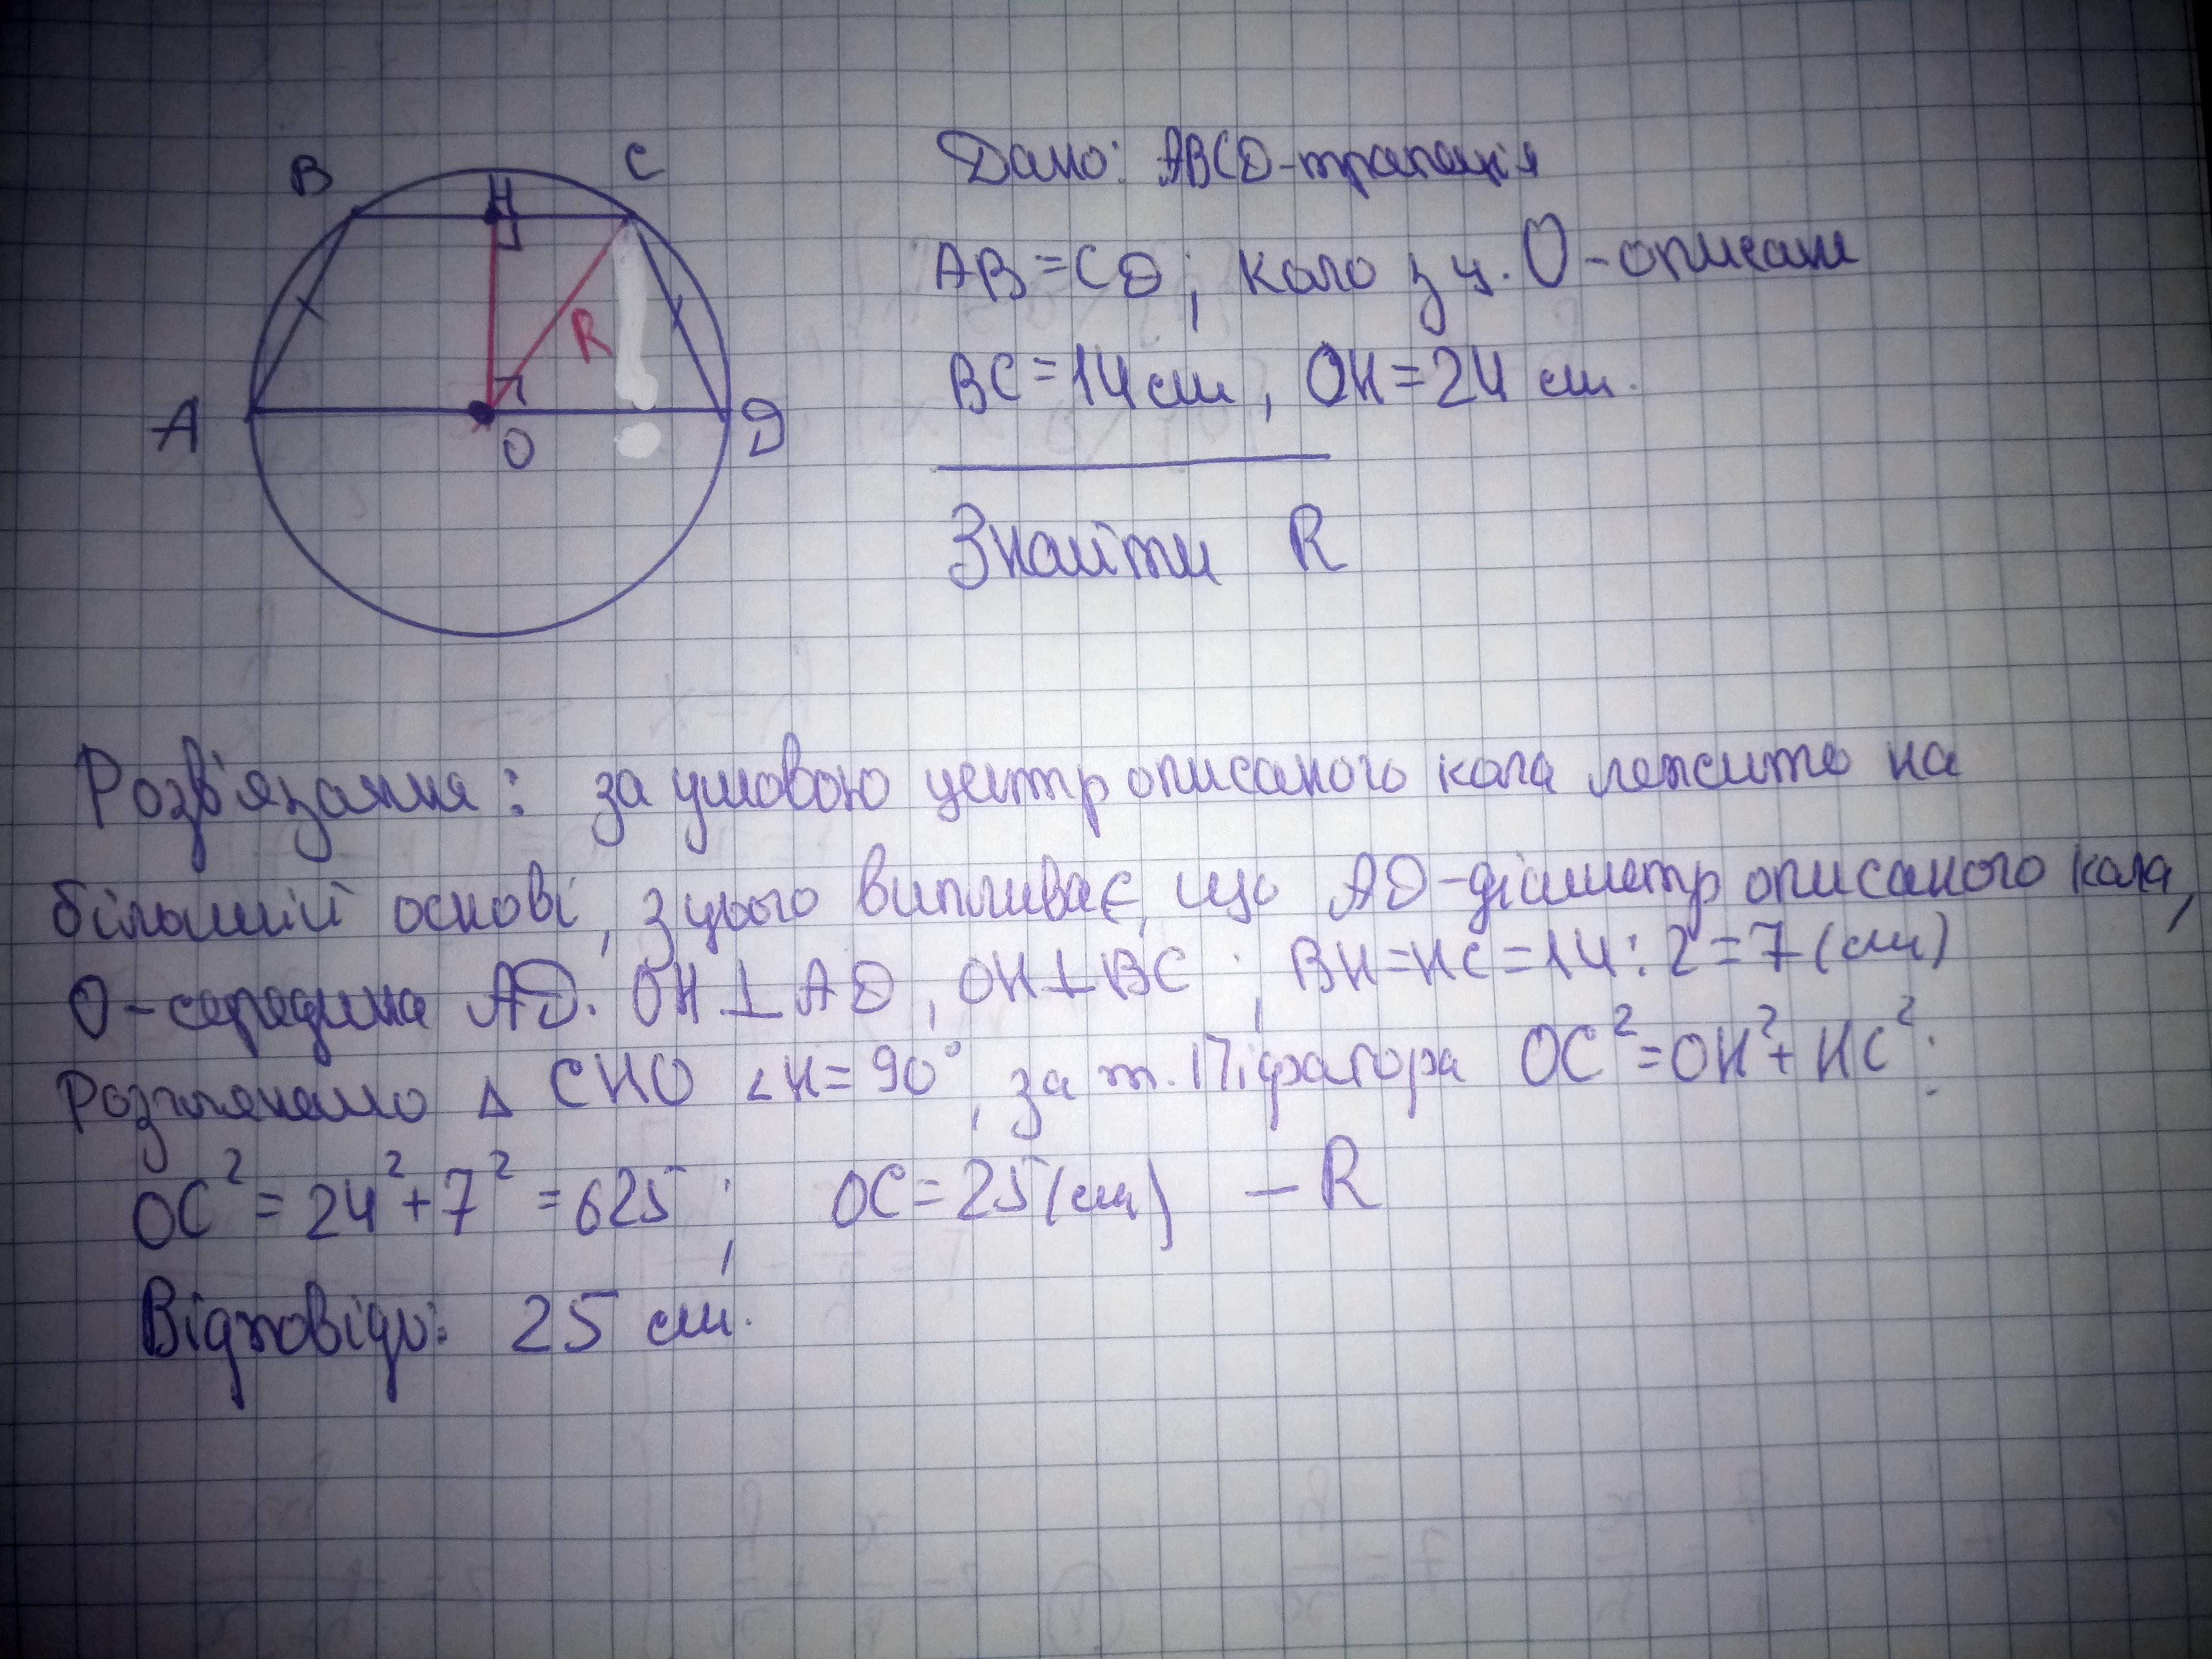 B H C
R
A O D
Дано: ABCD-трапеція
AB=CD; коло з ц. O-описане
BC=14см, OH=24 см.
Знайти R
Розв'язання: за умовою центр описаного кола лежить на
більшій основі, з цього випливає, що AD-діаметр описаного кола,
O-середина AD. OH⊥AD, OH⊥BC; BH=HC=14:2=7(см)
Розглянемо Δ CHO ∠H=90°, за т. Піфагора OC²=OH²+HC²;
OC²=24²+7²=625; OC=25(см) – R
Відповідь: 25 см.